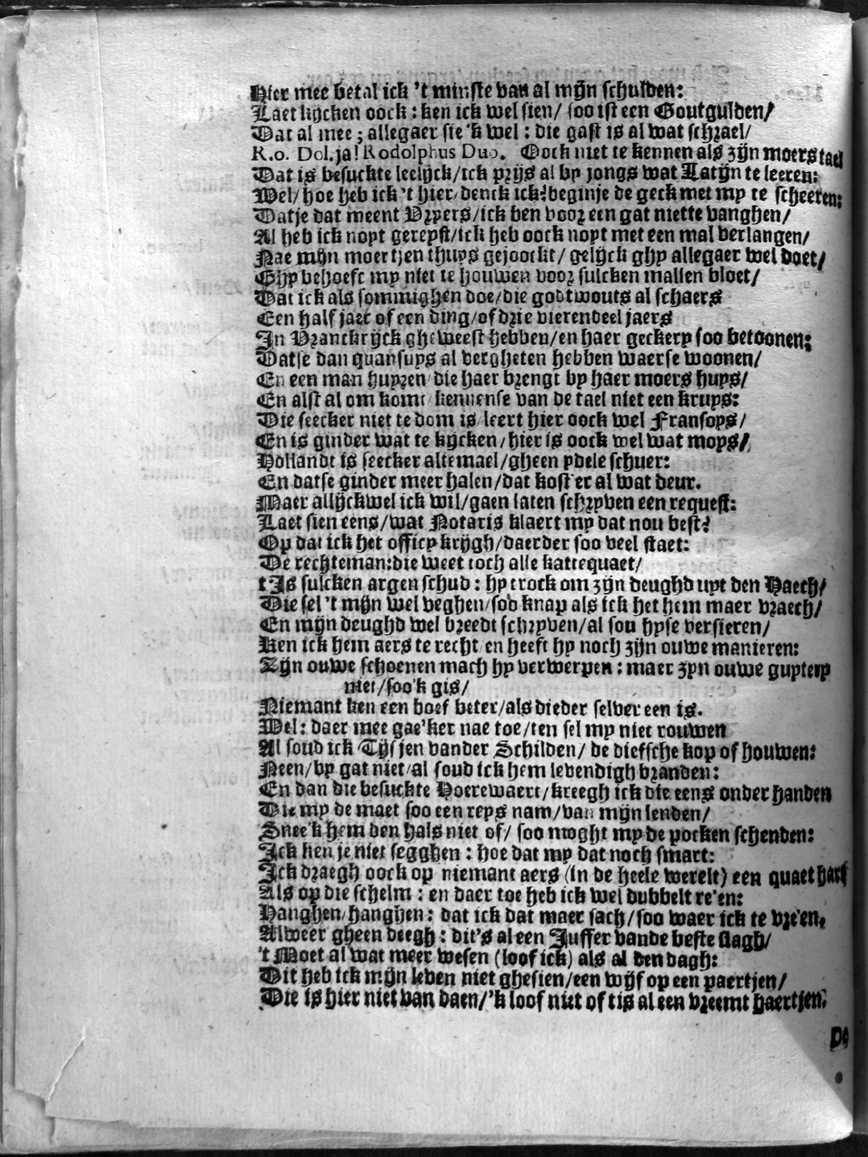 Hier mee betal ick 't minste van al mijn schulden:
Laet kijcken oock: ken ick wel sien/ soo ist een Goutgulden/
Dat al mee; allegaer sie'k wel: die gast is al wat schrael/
R.o. Dol. ja! Rodolphus Duo. Oock niet te kennen als zijn moers tael
Dat is besuckte leelijck/ick prijs al by jongs wat Latijn te leeren:
Wel/ hoe heb ick 't hier/denck ick? beginje de geck met my te scheeren:
Datje dat meent Vryers/ick ben voor een gat niette vanghen/
Al heb ick noyt gereyst/ick heb oock noyt met een mal verlangen/
Nae mijn moertjen thuys gejoockt/ gelijck ghy allegaer wel doet/
Ghy behoeft my niet te houwen voor sulcken mallen bloet/
Dat ick als sommighen doe/die godtwouts al schaers
Een half jaer of een ding/of drie vierendeel jaers
In Vranckrijck gheweest hebben/en haer geckery soo betoonen:
Datse dan quansuys al vergheten hebben waerse woonen/
En een man huyren/die haer brengt by haer moers huys/
En alst al om komt/kennense van de tael niet een kruys:
Die seecker niet te dom is/leert hier oock wel Fransoys/
En is ginder wat te kijcken/hier is oock wel wat moys/
Hollandt is seecker altemael/gheen ydele schuer:
En datse ginder meer halen/dat kost'er al wat deur.
Maer allijckwel ick wil/gaen laten schryven een request:
Laet sien eens/wat Notaris klaert my dat nou best?
Op dat ick het officy krijgh/daerder soo veel staet:
De rechteman: die weet toch alle kattequaet/
t'Is sulcken argen schud: hy trock om zijn deughd uyt den Haech/
Die sel 't mijn wel veghen/soo knap als ick het hem maer vraech/
En mijn deughd wel breedt schryven/al sou hyse versieren/
Ken ick hem aers te recht/en heeft hy noch zijn ouwe manieren:
Zijn ouwe schoenen mach hy verwerpen: maer zyn ouwe guytery
niet/soo'k gis/
Niemant ken een boef beter/als dieder selver een is.
Wel: daer mee gae'ker nae toe/ten sel my niet rouwen
Al soud ick Tijsjen vander Schilden/ de dieffsche kop of houwen:
Neen/by gat niet/al soud ick hem levendigh branden:
En dan die besuckte Hoerewaert/kreegh ick die eens onder handen
Die my de maet soo een reys nam/van mijn lenden/
Snee'k hem den hals niet of/ soo moght my de pocken schenden:
Ick ken je niet segghen: hoe dat my dat noch smart:
Ick draegh oock op niemant aers (in de heele werelt) een quaet hart
Als op die schelm: en daer toe heb ick wel dubbelt re'en:
Hanghen/hanghen: dat ick dat maer sach/soo waer ick te vre'en.
Alweer gheen deegh: dit's al een Juffer vande beste slagh/
't Moet al wat meer wesen (loof ick) als al den dagh:
Dit heb ick mijn leven niet ghesien/een wijf op een paertjen/
Die is hier niet van daen/'k loof niet of tis al een vreemt haertjen: